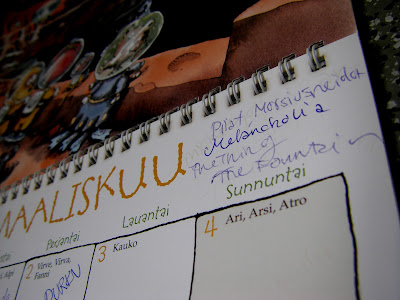 Pilat Morsiusneidot
Melancholia
The Thing of
The Fountain
MAALISKUU
Perjantai Lauantai Sunnuntai
2 Virve, Virva, 3 Kauko 4 Ari, Arsi, Atro